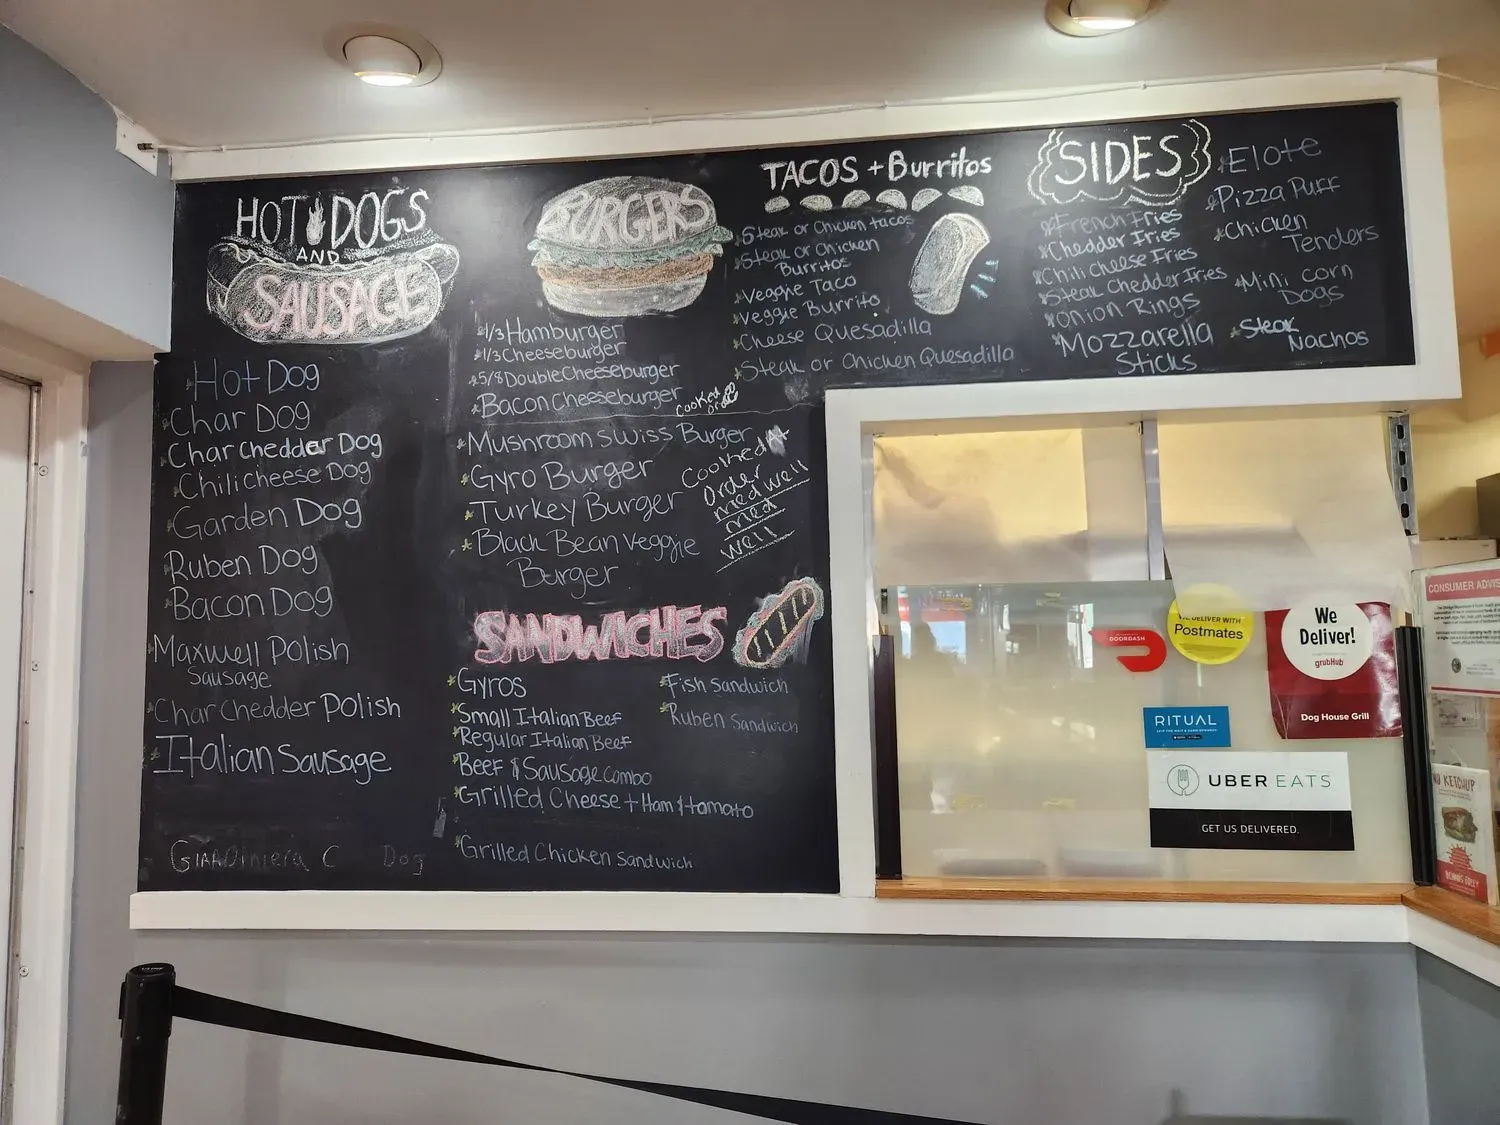 HOT DOGS
AND
SAUSAGE
Hot Dog
Char Dog
Char Chedder Dog
Chili Cheese Dog
Garden Dog
Ruben Dog
Bacon Dog
Maxwell Polish
Sausage
Char Chedder Polish
Italian Sausage
Dog
BURGERS
1/3 Hamburger
1/3 Cheeseburger
5/8 Double Cheeseburger
Bacon Cheeseburger
Cooked
Mushroom Swiss Burger
Gyro Burger
Turkey Burger
Black Bean Veggie
Burger
Cooked At
Order
med well
med
well
SANDWICHES
Gyros
Small Italian Beef
Regular Italian Beef
Beef & Sausage Combo
Grilled Cheese + Ham & tomato
Grilled Chicken Sandwich
Fish Sandwich
Ruben Sandwich
TACOS + Burritos
Steak or Chicken tacos
Steak or Chicken
Burritos
Veggie Taco
Veggie Burrito
Cheese Quesadilla
Steak or Chicken Quesadilla
SIDES
French Fries
Chedder Fries
Chili Cheese Fries
Steak Chedder Fries
Onion Rings
Mozzarella
Sticks
Elote
Pizza Puff
Chicken
Tenders
Mini Corn
Dogs
Steak
Nachos
DOORDASH
WE DELIVER WITH
Postmates
We
Deliver!
grubHub
Dog House Grill
RITUAL
UBER EATS
GET US DELIVERED.
CONSUMER
KETCHUP